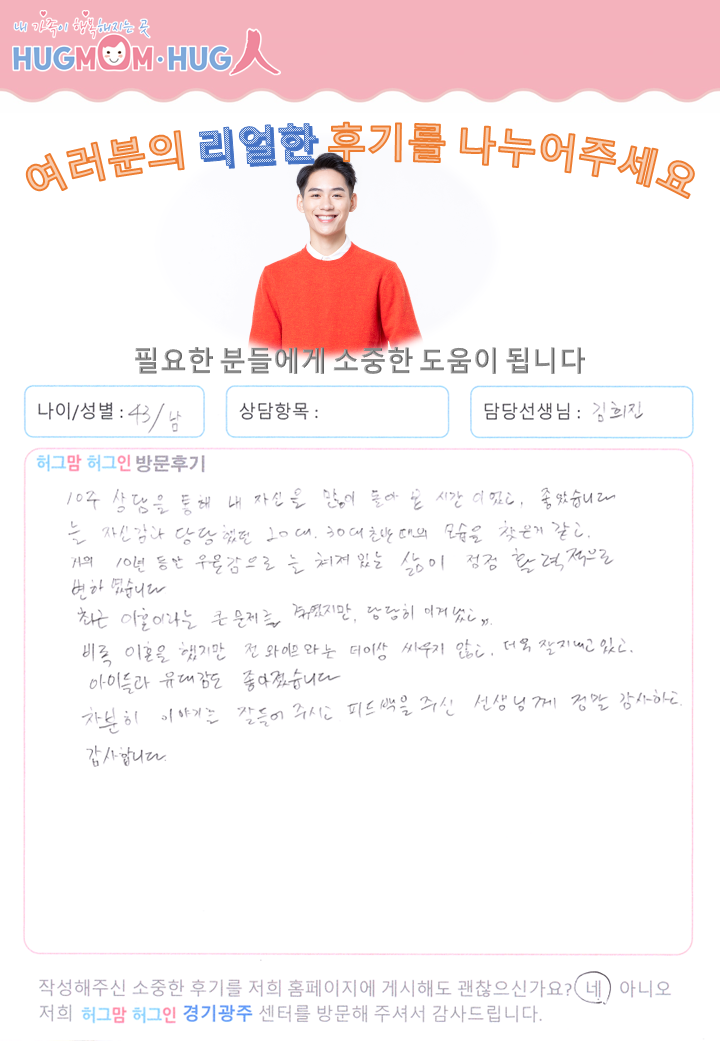 내 가족이 행복해지는 곳
HUGMOM·HUG人
여러분의 리얼한 후기를 나누어주세요
필요한 분들에게 소중한 도움이 됩니다
나이/성별 : 43/남
상담항목 :
담당선생님 : 김희진
허그맘 허그인 방문후기
10주 상담을 통해 내 자신을 많이 돌아 본 시간 이었고, 좋았습니다
늘 자신감과 당당했던 20대, 30대초반 때의 모습을 찾은거 같고,
거의 10년 동안 우울감으로 늘 쳐져있는 삶이 점점 활력적으로
변하였습니다
최근 이혼이라는 큰 문제를 겪였지만, 당당히 이겨냈고,,
비록 이혼을 했지만 전 와이프와는 더이상 싸우지 않고, 더욱 잘지내고 있고,
아이들과 유대감도 좋아졌습니다
차분히 이야기를 잘들어 주시고 피드백을 주신 선생님께 정말 감사하고
감사합니다.
작성해주신 소중한 후기를 저희 홈페이지에 게시해도 괜찮으신가요? 네 아니오
저희 허그맘 허그인 경기광주 센터를 방문해 주셔서 감사드립니다.